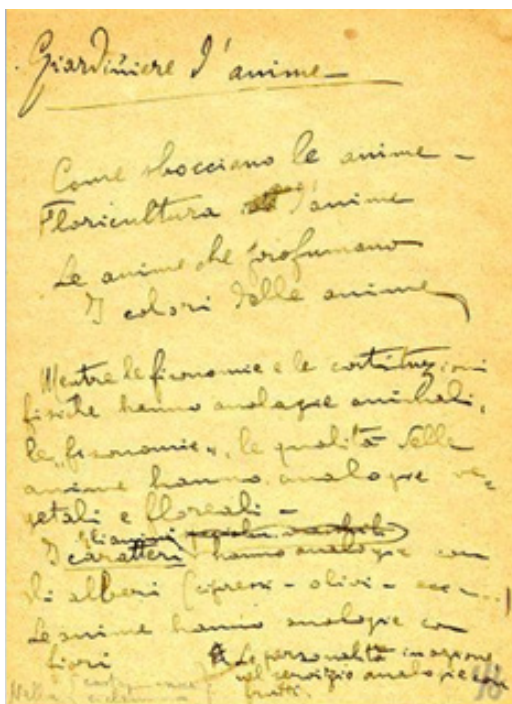 Giardiniere d'anime
Come sbocciano le anime -
Floricultura d'anime
Le anime che profumano
I colori delle anime
Mentre le fisonomie e le costituzioni
fisiche hanno analogie animali,
le "fisonomie", le qualità delle
anime hanno analogie ve-
getali e floreali -
I caratteri hanno analogie con
gli alberi (cipressi - olivi - ecc...)
Le anime hanno analogie con
fiori
Le personalità in azione
nel servizio analogie con
frutti.
Nella